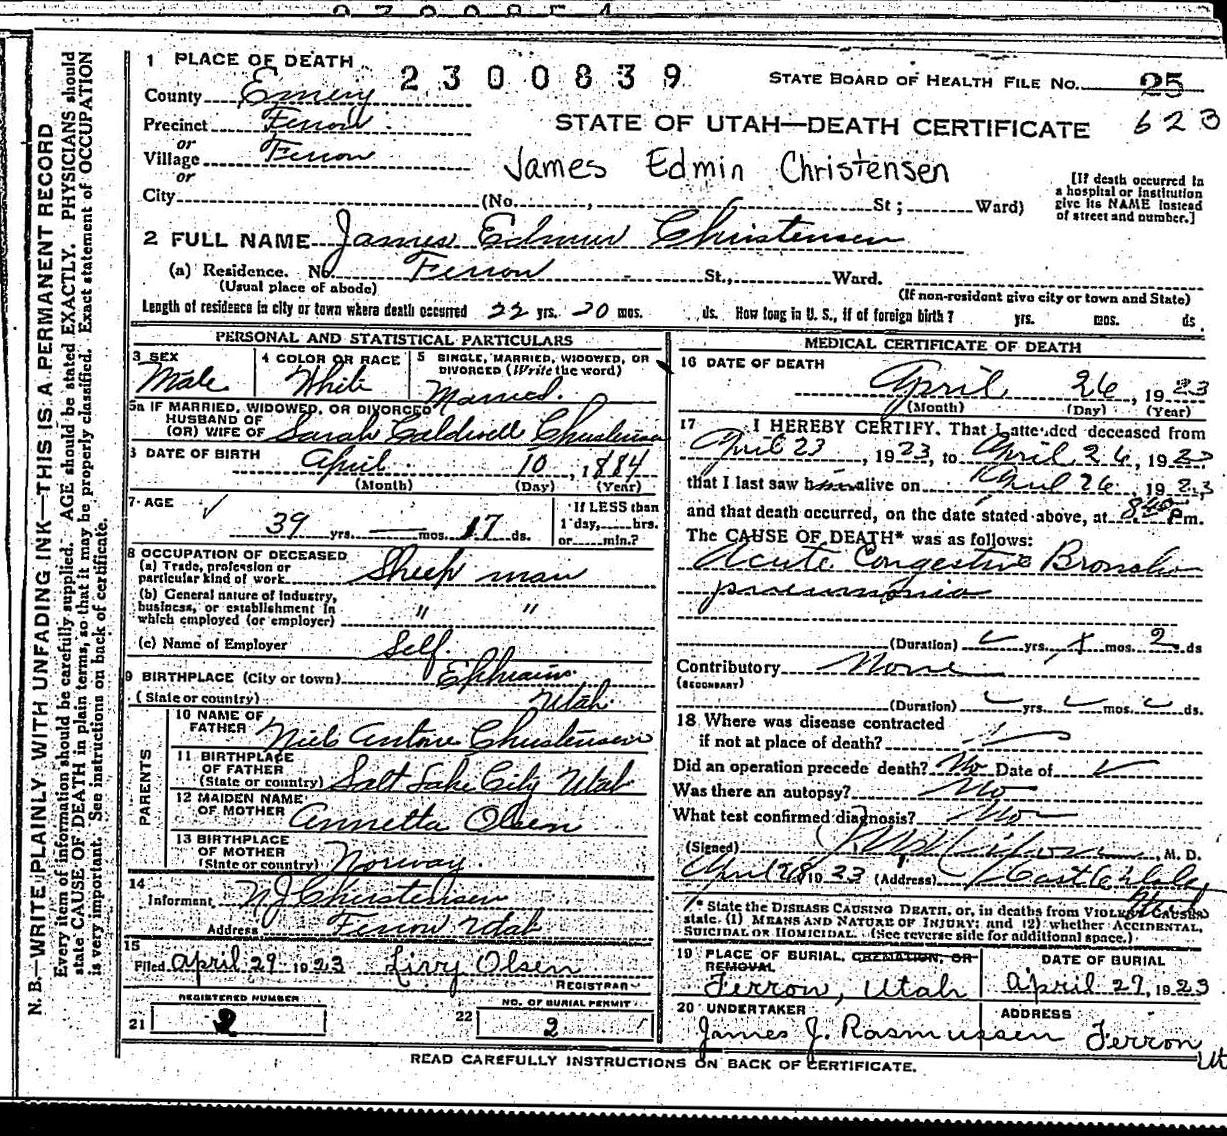 2300854
1 PLACE OF DEATH
2300839
STATE BOARD OF HEALTH FILE NO. 25
County Emery
623
Precinct Ferron
or
STATE OF UTAH—DEATH CERTIFICATE
Village Ferron
or
James Edmin Christensen
City (No. , St; Ward)
[If death occurred in a hospital or institution give its NAME instead of street and number.]
2 FULL NAME James Edmur Christensen
(a) Residence. No. Ferron St., Ward.
(Usual place of abode)
(If non-resident give city or town and State)
Length of residence in city or town where death occurred 22 yrs. 20 mos. ds. How long in U. S., if of foreign birth? yrs. mos. ds
PERSONAL AND STATISTICAL PARTICULARS
3 SEX
Male
4 COLOR OR RACE
White
5 SINGLE, MARRIED, WIDOWED, OR
DIVORCED (Write the word)
Married.
5a IF MARRIED, WIDOWED, OR DIVORCED
HUSBAND OF
(OR) WIFE OF Sarah Caldwell Christensen
6 DATE OF BIRTH April 10, 1884
(Month) (Day) (Year)
7 AGE
39 yrs. — mos. 17 ds.
If LESS than
1 day, hrs.
or min.?
8 OCCUPATION OF DECEASED
(a) Trade, profession or
particular kind of work Sheep man
(b) General nature of industry,
business, or establishment in
which employed (or employer) " "
(c) Name of Employer Self
9 BIRTHPLACE (City or town) Ephraim
(State or country) Utah
PARENTS
10 NAME OF
FATHER Niels Antone Christensen
11 BIRTHPLACE
OF FATHER
(State or country) Salt Lake City Utah
12 MAIDEN NAME
OF MOTHER Annetta Olsen
13 BIRTHPLACE
OF MOTHER
(State or country) Norway.
14
Informant N J Christensen
Address Ferron Utah
15
Filed April 29 1923 Livy Olsen
REGISTRAR
REGISTERED NUMBER
21 2
NO. OF BURIAL PERMIT
22 2
MEDICAL CERTIFICATE OF DEATH
16 DATE OF DEATH
April 26, 1923
(Month) (Day) (Year)
17 I HEREBY CERTIFY, That I attended deceased from
April 23, 1923, to April 26, 1923
that I last saw him alive on April 26 1923
and that death occurred, on the date stated above, at 8 40 Pm.
The CAUSE OF DEATH* was as follows:
Acute Congestive Broncho
pneumonia
(Duration) yrs. mos. 2 ds
Contributory None
(SECONDARY)
(Duration) yrs. mos. ds.
18 Where was disease contracted
if not at place of death?
Did an operation precede death? No Date of
Was there an autopsy? No
What test confirmed diagnosis? No
(Signed) M. D.
April 28 1923 (Address) Castle Dale
Utah
* State the DISEASE CAUSING DEATH, or, in deaths from VIOLENT CAUSES
state. (1) MEANS AND NATURE OF INJURY; and (2) whether ACCIDENTAL,
SUICIDAL OR HOMICIDAL. (See reverse side for additional space.)
19 PLACE OF BURIAL, CREMATION, OR
REMOVAL
Ferron, Utah
DATE OF BURIAL
April 29, 1923
20 UNDERTAKER
James J. Rasmussen
ADDRESS
Ferron
Ut
READ CAREFULLY INSTRUCTIONS ON BACK OF CERTIFICATE.
N. B.—WRITE PLAINLY WITH UNFADING INK—THIS IS A PERMANENT RECORD
Every item of information should be carefully supplied. AGE should be stated EXACTLY. PHYSICIANS should
state CAUSE OF DEATH in plain terms, so that it may be properly classified. Exact statement of OCCUPATION
is very important. See instructions on back of certificate.